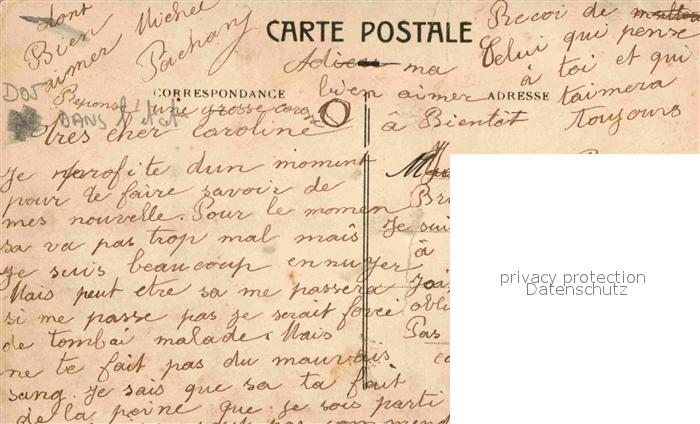 CARTE POSTALE
CORRESPONDANCE
ADRESSE
dont
Bien
aimer Michel
Adieu ma
bien aimer
à Bientôt
Recoi de
Celui qui pense
à toi et qui
t'aimera
Toujours
Reponse! une grosse
DOS
DANS l'état
très cher Caroline
Je profite dun moment
pour te faire savoir de
mes nouvelle. Pour le momen
sa va pas trop mal mais
je suis beaucoup ennuyer
Mais peut etre sa me passera
si me passe pas je serait forcé
de tombai malade. Mais
ne te fait pas du mauvais
sang. Je sais que sa ta fait
de la peine que je sois parti
Je sui
à
obli
Pas
privacy protection
Datenschutz